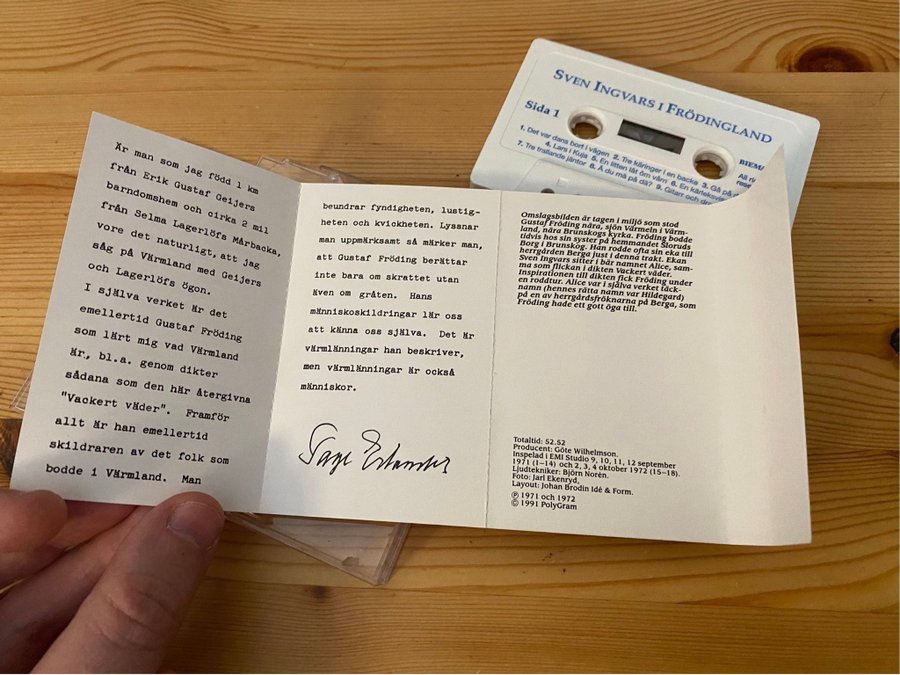 Är man som jag född 1 km
från Erik Gustaf Geijers
barndomshem och cirka 2 mil
från Selma Lagerlöfs Mårbacka,
vore det naturligt, att jag
såg på Värmland med Geijers
och Lagerlöfs ögon.
I själva verket är det
emellertid Gustaf Fröding
som lärt mig vad Värmland
är, bl.a. genom dikter
sådana som den här återgivna
"Vackert väder". Framför
allt är han emellertid
skildraren av det folk som
bodde i Värmland. Man
beundrar fyndigheten, lustig-
heten och kvickheten. Lyssnar
man uppmärksamt så märker man,
att Gustaf Fröding berättar
inte bara om skrattet utan
även om gråten. Hans
människoskildringar lär oss
att känna oss själva. Det är
värmlänningar han beskriver,
men värmlänningar är också
människor.
Tage Erlander
Omslagsbilden är tagen i miljö som stod
Gustaf Fröding nära, sjön Värmeln i Värm-
land, nära Brunskogs kyrka. Fröding bodde
tidvis hos sin syster på hemmandet Sloruds
Borg i Brunskog. Han rodde ofta sin eka till
herrgården Berga just i denna trakt. Ekan
Sven Ingvars sitter i bär namnet Alice, sam-
ma som flickan i dikten Vackert väder.
Inspirationen till dikten fick Fröding under
en roddtur. Alice var i själva verket täck-
namn (hennes rätta namn var Hildegard)
på en av herrgårdsfröknarna på Berga, som
Fröding hade ett gott öga till.
Totaltid: 52.52
Producent: Göte Wilhelmson.
Inspelad i EMI Studio 9, 10, 11, 12 september
1971 (1–14) och 2, 3, 4 oktober 1972 (15–18).
Ljudtekniker: Björn Norén.
Foto: Jarl Ekenryd,
Layout: Johan Brodin Idé & Form.
℗ 1971 och 1972
© 1991 PolyGram
SVEN INGVARS I FRÖDINGLAND
Sida 1
BIEM/
1. Det var dans bort i vägen 2. Tre käringer i en backa 3. Gå på d
4. Lars i Kuja 5. En litten låt öm vårn 6. En kärleks
7. Tre trallande jäntor 8. Å du må på då? 9. Gitarr och dr
All ri
rese